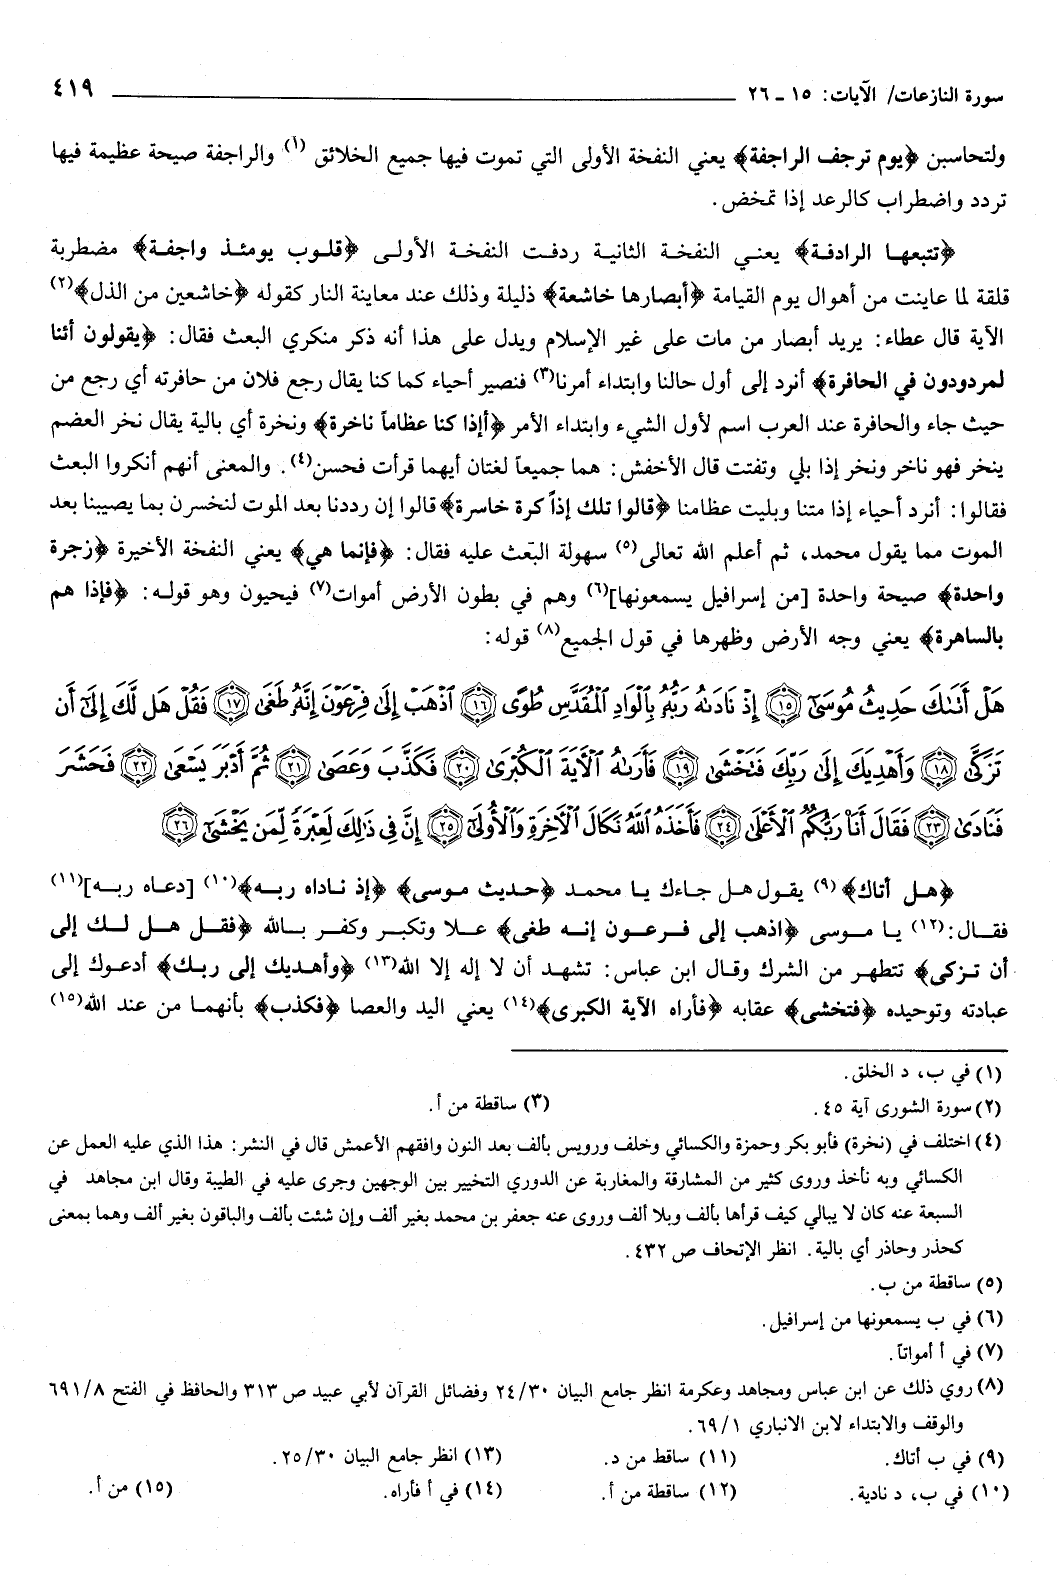 سورة النازعات/ الآيات: ١٥ ـ ٢٦ ٤١٩
ولتحاسبن ﴿يوم ترجف الراجفة﴾ يعني النفخة الأولى التي تموت فيها جميع الخلائق (١) والراجفة صيحة عظيمة فيها
تردد واضطراب كالرعد إذا تمخض.
﴿تتبعها الرادفة﴾ يعني النفخة الثانية ردفت النفخة الأولى ﴿قلوب يومئذ واجفة﴾ مضطربة
قلقة لما عاينت من أهوال يوم القيامة ﴿أبصارها خاشعة﴾ ذليلة وذلك عند معاينة النار كقوله ﴿خاشعين من الذل﴾(٢)
الآية قال عطاء: يريد أبصار من مات على غير الإسلام ويدل على هذا أنه ذكر منكري البعث فقال: ﴿يقولون أئنا
لمردودون في الحافرة﴾ أنرد إلى أول حالنا وابتداء أمرنا(٣) فنصير أحياء كما كنا يقال رجع فلان من حافرته أي رجع من
حيث جاء والحافرة عند العرب اسم لأول الشيء وابتداء الأمر ﴿أإذا كنا عظاماً ناخرة﴾ ونخرة أي بالية يقال نخر العضم
ينخر فهو ناخر ونخر إذا بلي وتفتت قال الأخفش: هما جميعاً لغتان أيهما قرأت فحسن(٤). والمعنى أنهم أنكروا البعث
فقالوا: أنرد أحياء إذا متنا وبليت عظامنا ﴿قالوا تلك إذاً كرة خاسرة﴾ قالوا إن رددنا بعد الموت لنخسرن بما يصيبنا بعد
الموت مما يقول محمد، ثم أعلم الله تعالى(٥) سهولة البعث عليه فقال: ﴿فإنما هي﴾ يعني النفخة الأخيرة ﴿زجرة
واحدة﴾ صيحة واحدة [من إسرافيل يسمعونها](٦) وهم في بطون الأرض أموات(٧) فيحيون وهو قوله: ﴿فإذا هم
بالساهرة﴾ يعني وجه الأرض وظهرها في قول الجميع(٨) قوله:
هَلْ أَتَىٰكَ حَدِيثُ مُوسَىٰٓ ﴿١٥﴾ إِذْ نَادَىٰهُ رَبُّهُۥ بِٱلْوَادِ ٱلْمُقَدَّسِ طُوًى ﴿١٦﴾ ٱذْهَبْ إِلَىٰ فِرْعَوْنَ إِنَّهُۥ طَغَىٰ ﴿١٧﴾ فَقُلْ هَل لَّكَ إِلَىٰٓ أَن
تَزَكَّىٰ ﴿١٨﴾ وَأَهْدِيَكَ إِلَىٰ رَبِّكَ فَتَخْشَىٰ ﴿١٩﴾ فَأَرَىٰهُ ٱلْآيَةَ ٱلْكُبْرَىٰ ﴿٢٠﴾ فَكَذَّبَ وَعَصَىٰ ﴿٢١﴾ ثُمَّ أَدْبَرَ يَسْعَىٰ ﴿٢٢﴾ فَحَشَرَ
فَنَادَىٰ ﴿٢٣﴾ فَقَالَ أَنَا۠ رَبُّكُمُ ٱلْأَعْلَىٰ ﴿٢٤﴾ فَأَخَذَهُ ٱللَّهُ نَكَالَ ٱلْآخِرَةِ وَٱلْأُولَىٰٓ ﴿٢٥﴾ إِنَّ فِى ذَٰلِكَ لَعِبْرَةً لِّمَن يَخْشَىٰٓ ﴿٢٦﴾
﴿هل أتاك﴾ (٩) يقول هل جاءك يا محمد ﴿حديث موسى﴾ ﴿إذ ناداه ربه﴾(١٠) [دعاه ربه](١١)
فقال:(١٢) يا موسى ﴿اذهب إلى فرعون إنه طغى﴾ علا وتكبر وكفر بالله ﴿فقل هل لك إلى
أن تزكى﴾ تتطهر من الشرك وقال ابن عباس: تشهد أن لا إله إلا الله(١٣) ﴿وأهديك إلى ربك﴾ أدعوك إلى
عبادته وتوحيده ﴿فتخشى﴾ عقابه ﴿فأراه الآية الكبرى﴾(١٤) يعني اليد والعصا ﴿فكذب﴾ بأنهما من عند الله(١٥)
(١) في ب، د الخلق.
(٢) سورة الشورى آية ٤٥. (٣) ساقطة من أ.
(٤) اختلف في (نخرة) فأبو بكر وحمزة والكسائي وخلف ورويس بألف بعد النون وافقهم الأعمش قال في النشر: هذا الذي عليه العمل عن
الكسائي وبه نأخذ وروى كثير من المشارقة والمغاربة عن الدوري التخيير بين الوجهين وجرى عليه في الطيبة وقال ابن مجاهد في
السبعة عنه كان لا يبالي كيف قرأها بألف وبلا ألف وروى عنه جعفر بن محمد بغير ألف وإن شئت بألف والباقون بغير ألف وهما بمعنى
كحذر وحاذر أي بالية. انظر الإتحاف ص ٤٣٢.
(٥) ساقطة من ب.
(٦) في ب يسمعونها من إسرافيل.
(٧) في أ أمواتاً.
(٨) روي ذلك عن ابن عباس ومجاهد وعكرمة انظر جامع البيان ٢٤/٣٠ وفضائل القرآن لأبي عبيد ص ٣١٣ والحافظ في الفتح ٦٩١/٨
والوقف والابتداء لابن الانباري ٦٩/١.
(٩) في ب أتاك. (١١) ساقط من د. (١٣) انظر جامع البيان ٢٥/٣٠.
(١٠) في ب، د نادية. (١٢) ساقطة من أ. (١٤) في أ فأراه. (١٥) من أ.